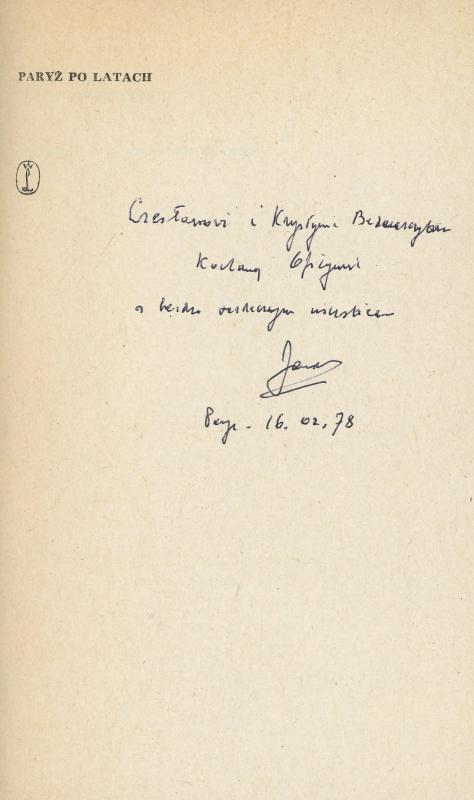 PARYŻ PO LATACH
Czesławowi i Krystynie Bednarczykom
Kochanej Oficynie
z bardzo serdecznym uściskiem
Paryż. 16. 02. 78